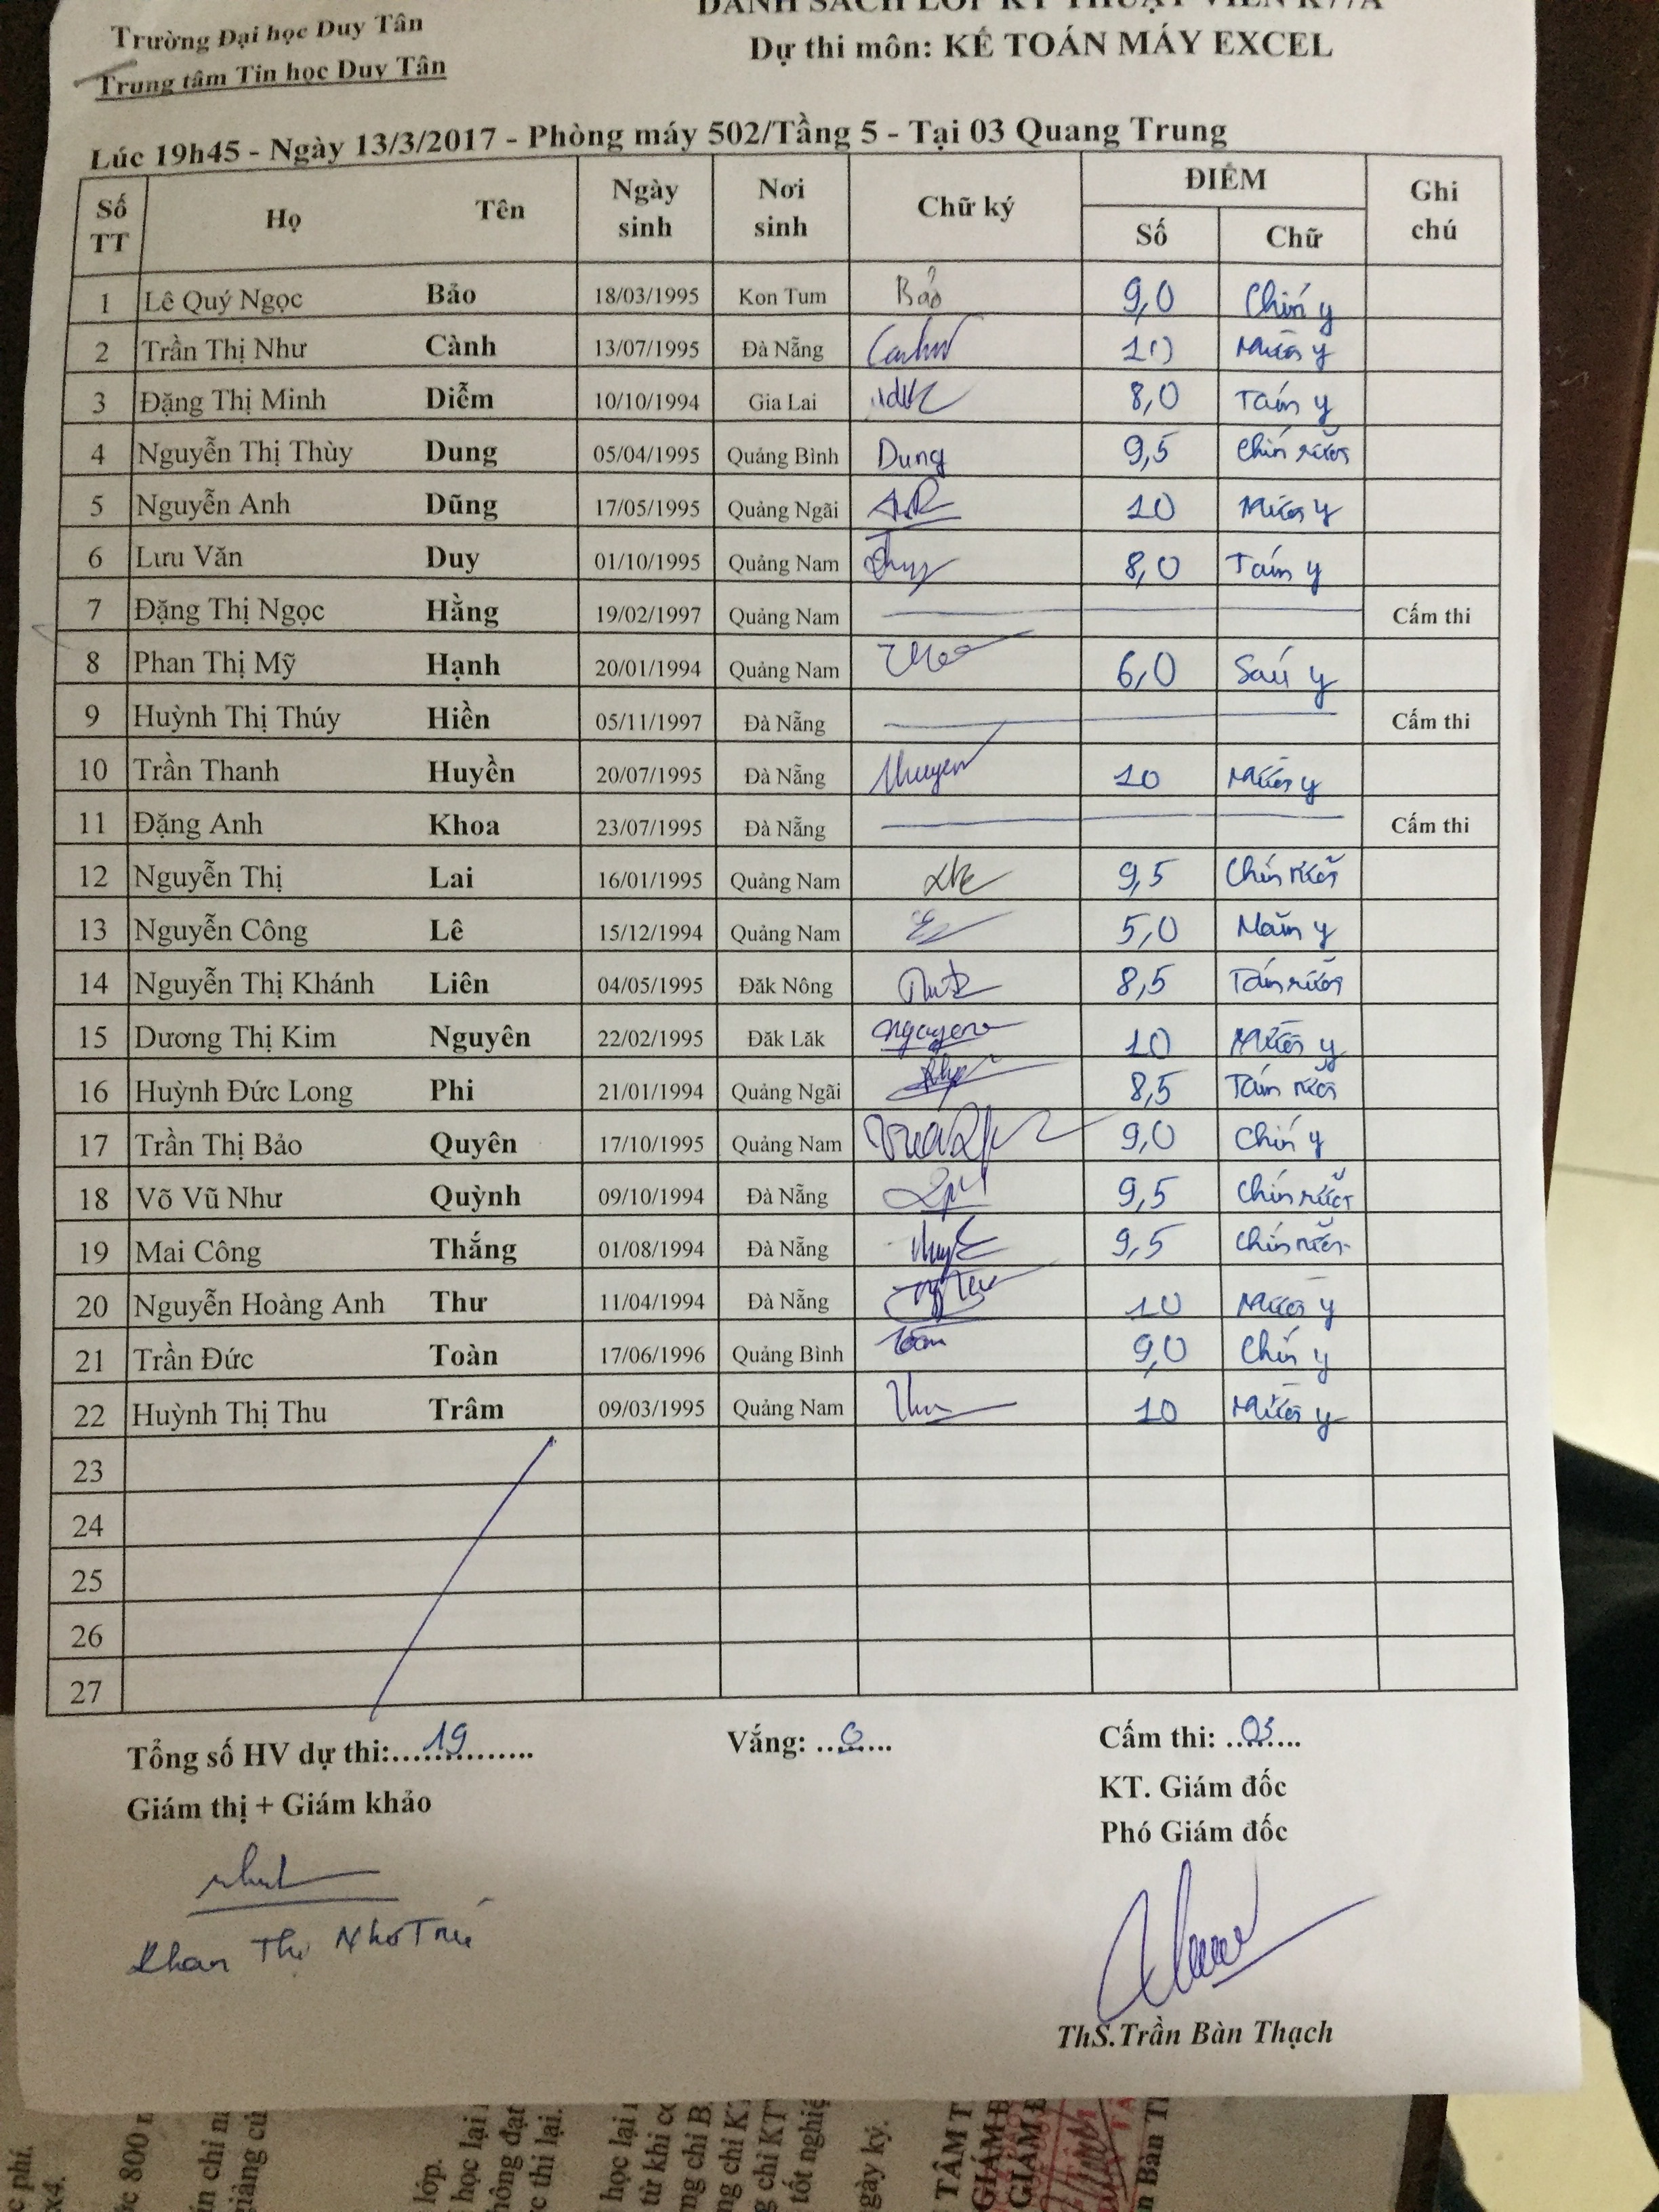 DANH SÁCH LỚP KỸ THUẬT VIÊN K77A
Trường Đại học Duy Tân
Dự thi môn: KẾ TOÁN MÁY EXCEL
Trung tâm Tin học Duy Tân
Lúc 19h45 - Ngày 13/3/2017 - Phòng máy 502/Tầng 5 - Tại 03 Quang Trung
Số TT Họ Tên Ngày sinh Nơi sinh Chữ ký ĐIỂM Ghi chú
Số Chữ
1 Lê Quý Ngọc Bảo 18/03/1995 Kon Tum Bảo 9,0 Chín y
2 Trần Thị Như Cành 13/07/1995 Đà Nẵng 10 Mười y
3 Đặng Thị Minh Diễm 10/10/1994 Gia Lai 8,0 Tám y
4 Nguyễn Thị Thùy Dung 05/04/1995 Quảng Bình Dung 9,5 Chín rưỡi
5 Nguyễn Anh Dũng 17/05/1995 Quảng Ngãi 10 Mười y
6 Lưu Văn Duy 01/10/1995 Quảng Nam Duy 8,0 Tám y
7 Đặng Thị Ngọc Hằng 19/02/1997 Quảng Nam Cấm thi
8 Phan Thị Mỹ Hạnh 20/01/1994 Quảng Nam 6,0 Sáu y
9 Huỳnh Thị Thúy Hiền 05/11/1997 Đà Nẵng Cấm thi
10 Trần Thanh Huyền 20/07/1995 Đà Nẵng Huyền 10 Mười y
11 Đặng Anh Khoa 23/07/1995 Đà Nẵng Cấm thi
12 Nguyễn Thị Lai 16/01/1995 Quảng Nam 9,5 Chín rưỡi
13 Nguyễn Công Lê 15/12/1994 Quảng Nam 5,0 Năm y
14 Nguyễn Thị Khánh Liên 04/05/1995 Đăk Nông 8,5 Tám rưỡi
15 Dương Thị Kim Nguyên 22/02/1995 Đăk Lăk Nguyên 10 Mười y
16 Huỳnh Đức Long Phi 21/01/1994 Quảng Ngãi 8,5 Tám rưỡi
17 Trần Thị Bảo Quyên 17/10/1995 Quảng Nam 9,0 Chín y
18 Võ Vũ Như Quỳnh 09/10/1994 Đà Nẵng 9,5 Chín rưỡi
19 Mai Công Thắng 01/08/1994 Đà Nẵng 9,5 Chín rưỡi
20 Nguyễn Hoàng Anh Thư 11/04/1994 Đà Nẵng 10 Mười y
21 Trần Đức Toàn 17/06/1996 Quảng Bình Toàn 9,0 Chín y
22 Huỳnh Thị Thu Trâm 09/03/1995 Quảng Nam 10 Mười y
23
24
25
26
27
Tổng số HV dự thi:....19.... Vắng: ...0... Cấm thi: ...03...
Giám thị + Giám khảo KT. Giám đốc
Phó Giám đốc
Phan Thị Như Trú
ThS.Trần Bàn Thạch